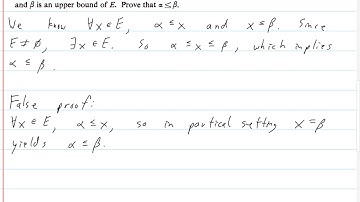 and β is an upper bound of E. Prove that α ≤ β.
We know ∀x ∈ E, α ≤ x and x ≤ β. Since
E ≠ ∅, ∃x ∈ E. So α ≤ x ≤ β, which implies
α ≤ β.
False proof:
∀x ∈ E, α ≤ x, so in partical setting x = β
yields α ≤ β.